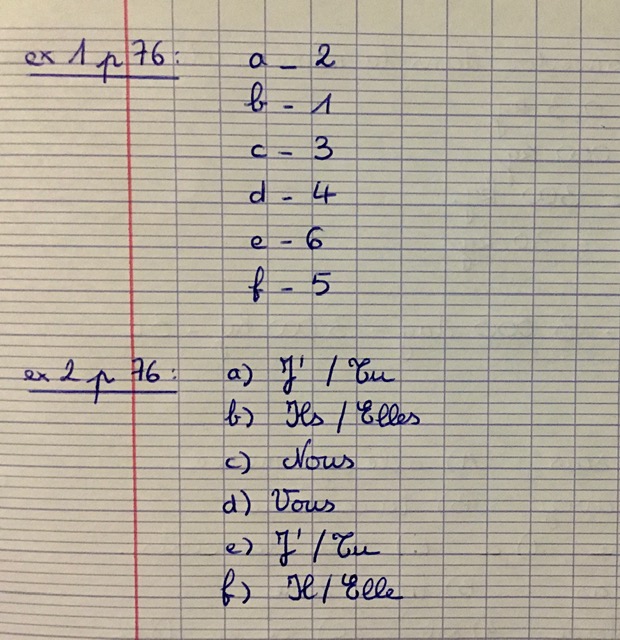 ex 1 p 76 : a - 2
b - 1
c - 3
d - 4
e - 6
f - 5
ex 2 p 76 : a) J' / Tu
b) Ils / Elles
c) Nous
d) Vous
e) J' / Tu
f) Il / Elle